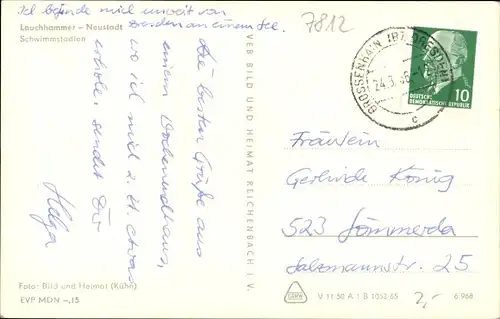 Ich befinde mich unweit von
Dresden an einem See.
7812
Lauchhammer – Neustadt
Schwimmstadion
die besten Grüße aus
einem Wochenendhaus,
wo ich mich z. Zt. etwas
erhole, sendet Dir
Helga
Foto: Bild und Heimat (Kühn)
EVP MDN –,15
VEB BILD UND HEIMAT REICHENBACH I. V.
GROSSENHAIN (BZ DRESDEN)
24.3.66
c
10
DEUTSCHE
DEMOKRATISCHE REPUBLIK
Fräulein
Gerlinde König
523 Sömmerda
Salzmannstr. 25
V 11 50 A 1 B 1053/65
6 968
2,-